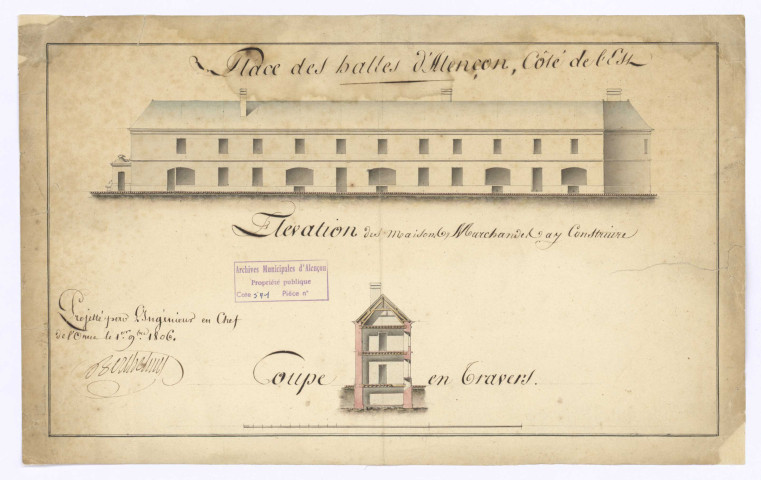 Place des halles d'Alençon, Côté de l'Est
Elevation des Maisons Marchandes a y Construire
Archives Municipales d'Alençon
Propriété publique
Cote 591 Pièce n°
Projetté par L'Ingénieur en Chef
de l'Orne le 1er 9bre 1806.
Coupe en Travers.